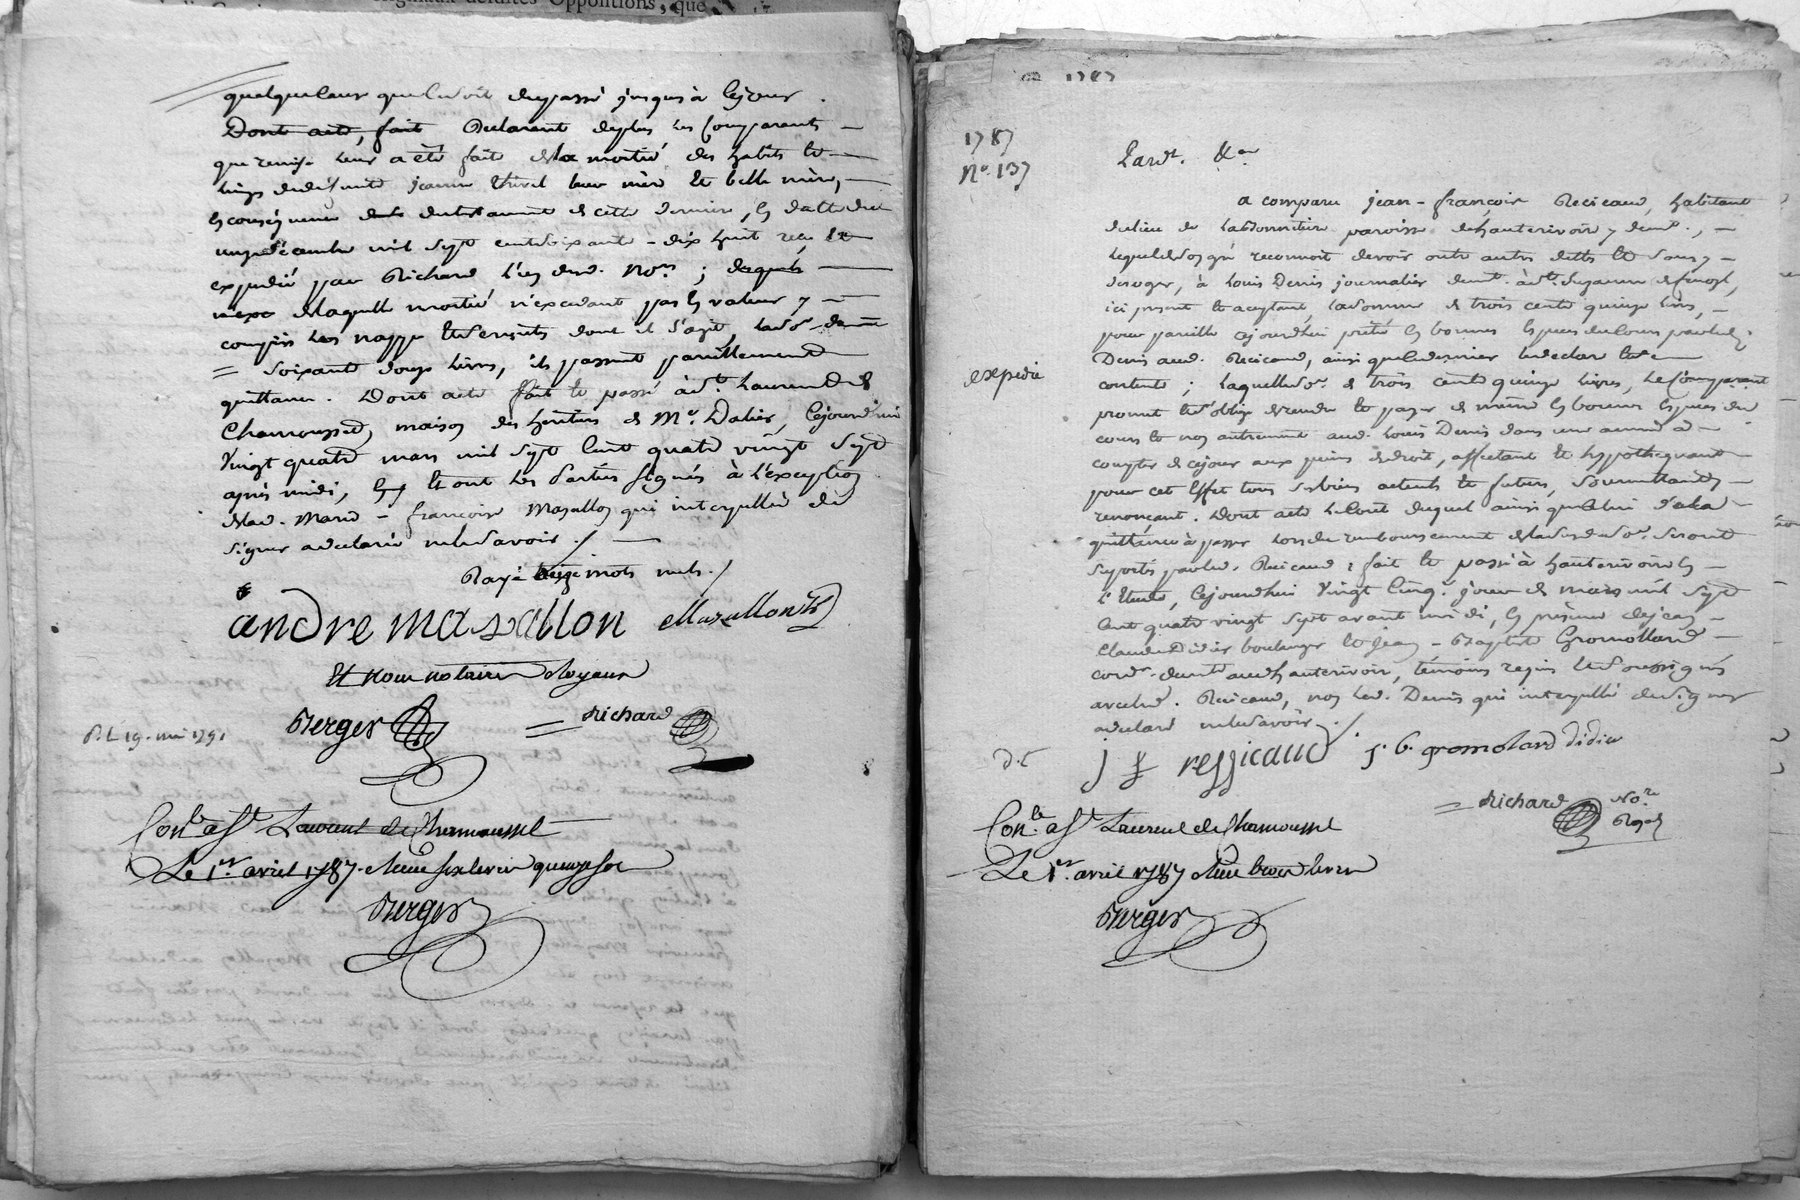 originaux desdites Oppositions, que
quelqueleur que ce soit du passé jusqu'à ce jour.
Dont acte, fait Déclarent de plus les Comparants
que remise leur a été faite de la moitié des habits et
linge de deffunte jeanne thivel leur mère et belle mère,
en conséquence du testament de cette dernière, en datte du
onze décembre mil sept cent soixante-dix huit reçu et
expédié par Richard l'un des d. Nores ; duquel
n'exc de laquelle moitié n'excedant pas la valeur y
compris les nappe et serviettes dont il s'agit, la so. de
= soixante douze livres, ils passent pareillement
quittance. Dont acte fait et passé à St. Laurent de
Chamousset, maison des héritiers de Me. Dalier, cejourd'hui
Vingt quatre mars mil sept cent quatre vingt sept
après midi, et ont les Parties signés à l'exception
de lad. Marie-françoise Mazallon qui interpellée de
signer a déclaré ne le savoir ./.
Rayé treize mots nuls ./
andre masallon Mazallon
Et nous notaires Royaux
Berger = Richard
P. L. 19. mai 1791
Conlé a St Laurent de Chamousset
Le 1er avril 1787. Reçu six livres quinze sols
Berger
1787
1787
No. 137
Pardt. &a
a comparu jean-françois Recicaud, habitant
du lieu de Labonnetière paroisse d'hauterivoire y demt.,
lequel de son gré reconnoit devoir outre autres dettes et sans y
deroger, à Louis Denis journalier demt. à Ste. Foy,
ici present et acceptant, la somme de trois cents quinze livres,
pour pareille cejourd'hui prêté en bonnes Espèces du cours par led.
Denis aud. Recicaud, ainsi que ce dernier le déclare
contente ; laquelle so. de trois cents quinze livres, le Comparant
expédié
promet et s'oblige de rendre et payer de même en bonnes Espèces du
cours et non autrement aud. Louis Denis dans une année à
compter de ce jour aux peines de droit, affectant et hypothequant
pour cet Effet tous ses biens actuels et futurs, soumettant
renonçant. Dont acte le Cout duquel ainsi que celui de la
quittance à passer lors du remboursement de la susd. so. seront
suportés par led. Recicaud ; fait et passé à hauterivoire en
l'Etude, cejourd'hui Vingt cinq. jour de mars mil sept
Cent quatre vingt sept avant midi, en présence de jean
Claude Didier boulanger et Jean-Baptiste Gromolard
cord. demt. aud. hauterivoire, témoins requis et soussignés
avec led. Recicaud, non led. Denis qui interpellé de signer
a déclaré ne le savoir ./
d. C
j f ressicaud j. b. gromolard didier
= Richard Nore Royal
Conlé a St Laurent de Chamousset
Le 1er. avril 1787 Reçu trois livres
Berger